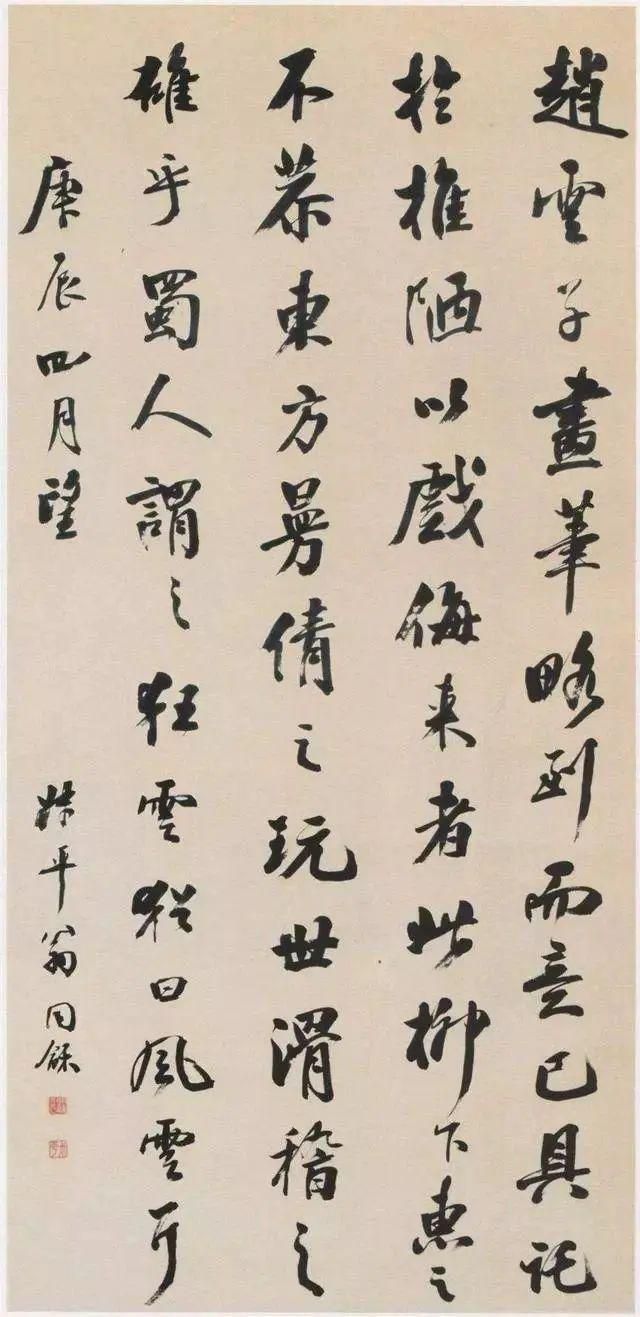 趙雲子畫筆略到而意已具託
於椎陋以戲侮来者此柳下惠之
不恭東方曼倩之玩世滑稽之
雄乎蜀人謂之狂雲猶曰風雲耳
庚辰四月望 叔平翁同龢